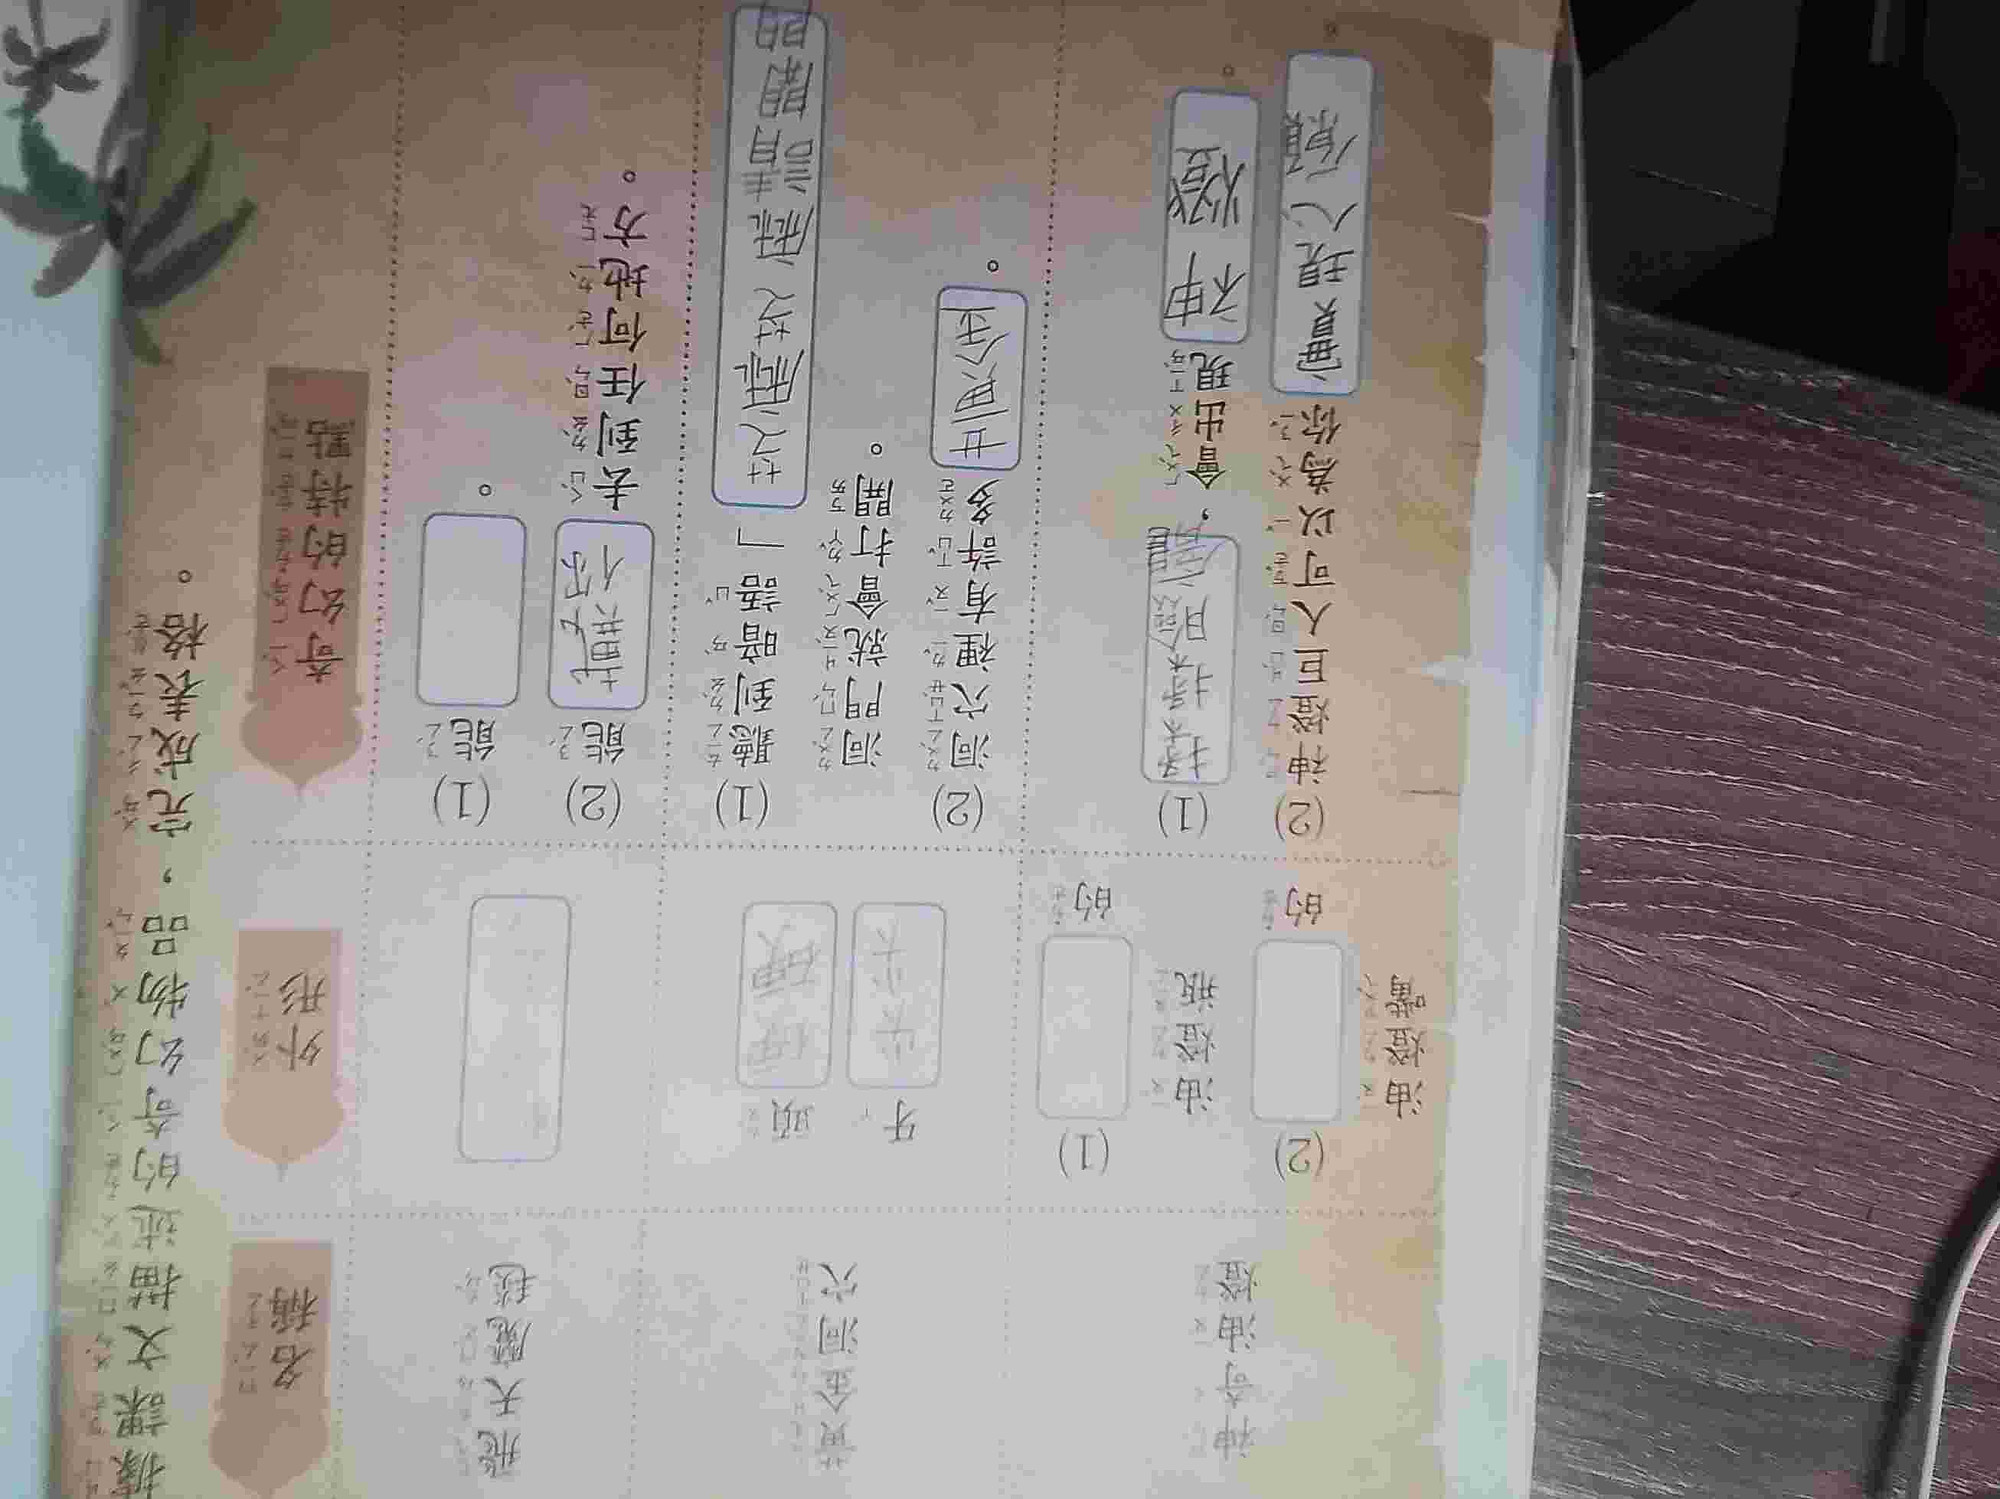 據課文描述的奇幻物品，完成表格。
名稱
外形
奇幻的特點
飛天魔毯
(1) 能 。
(2) 能載你去到任何地方。
黃金洞穴
頭硬硬
牙尖尖
(1) 聽到暗語「芝麻芝麻請開門
洞門就會打開。
(2) 洞穴裡有許多黃金。
神奇油燈
(1) 的
油燈瓶
(2) 的
油燈嘴
(1) 擦擦，會出現神燈。
(2) 神燈巨人可以為你實現心願。